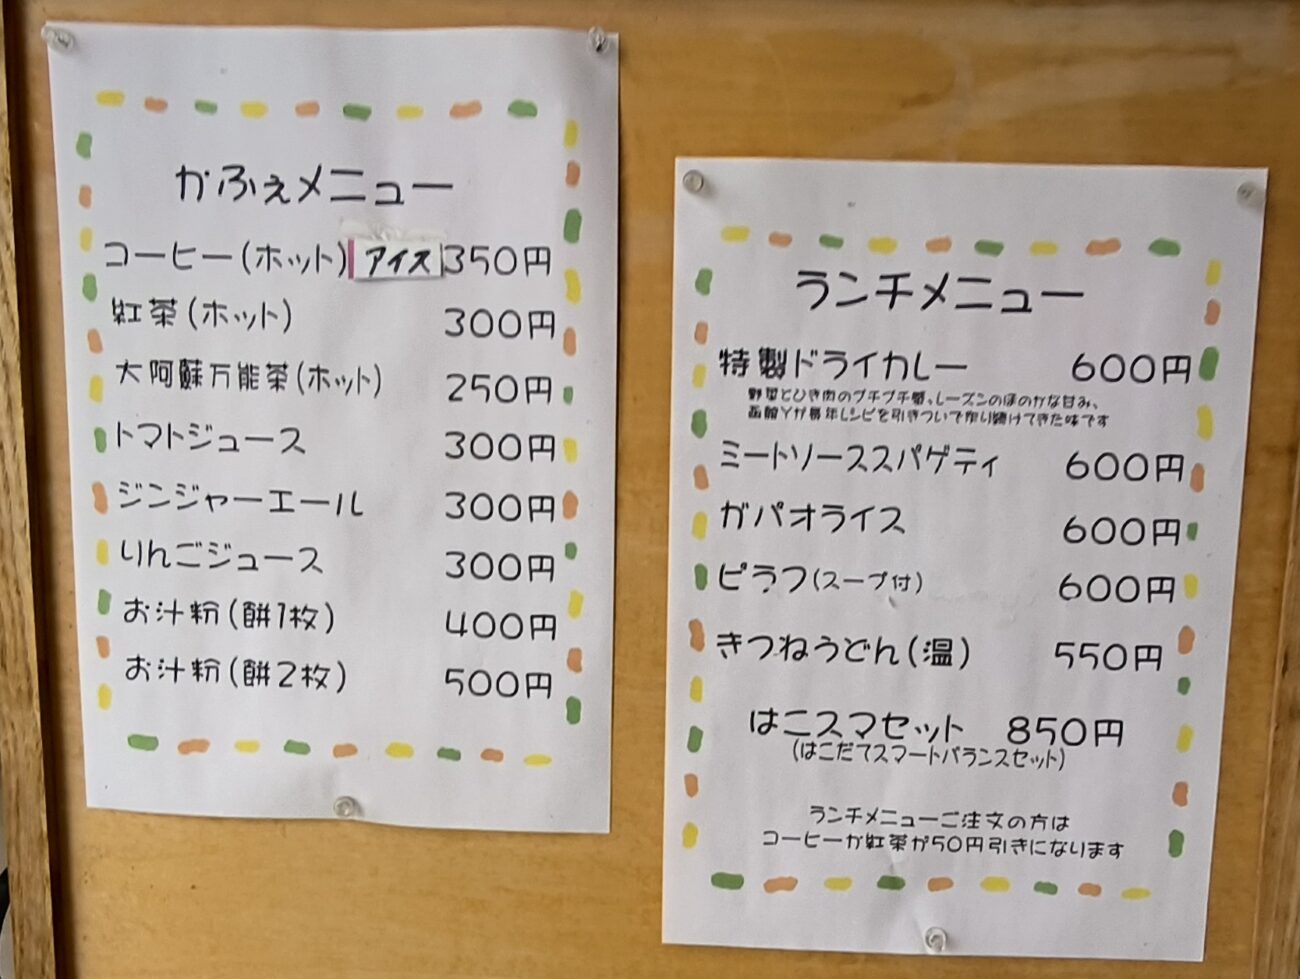 かふぇメニュー
コーヒー(ホット) アイス 350円
紅茶(ホット) 300円
大阿蘇万能茶(ホット) 250円
トマトジュース 300円
ジンジャーエール 300円
りんごジュース 300円
お汁粉(餅1枚) 400円
お汁粉(餅2枚) 500円
ランチメニュー
特製ドライカレー 600円
野菜とひき肉のプチプチ感、レーズンのほのかな甘み、
函館Yが長年レシピを引きついで作り続けてきた味です
ミートソーススパゲティ 600円
ガパオライス 600円
ピラフ(スープ付) 600円
きつねうどん(温) 550円
はこスマセット 850円
(はこだてスマートバランスセット)
ランチメニューご注文の方は
コーヒーか紅茶が50円引きになります